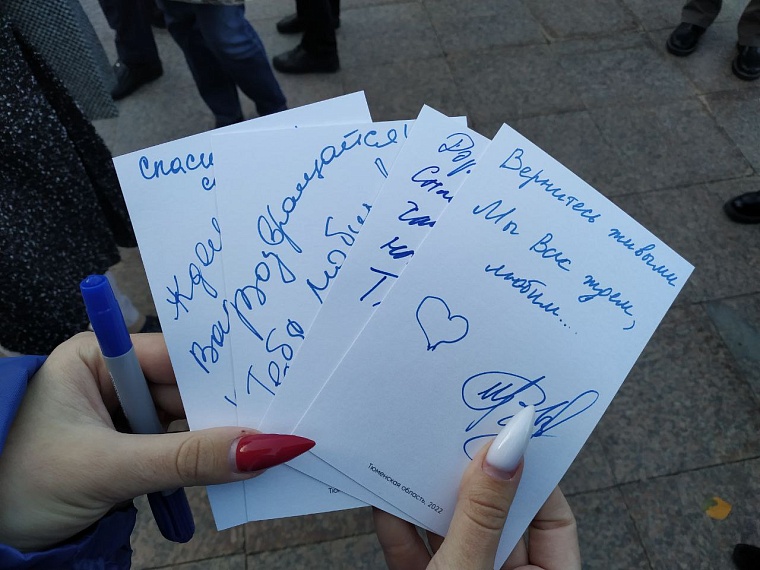 Спаси
Жде
Ва
Возвращайся!
Тебя любим!
Дор
Спа
Вернитесь живыми
Мы Вас ждем,
любим...
Тюменская область, 2022
Тю